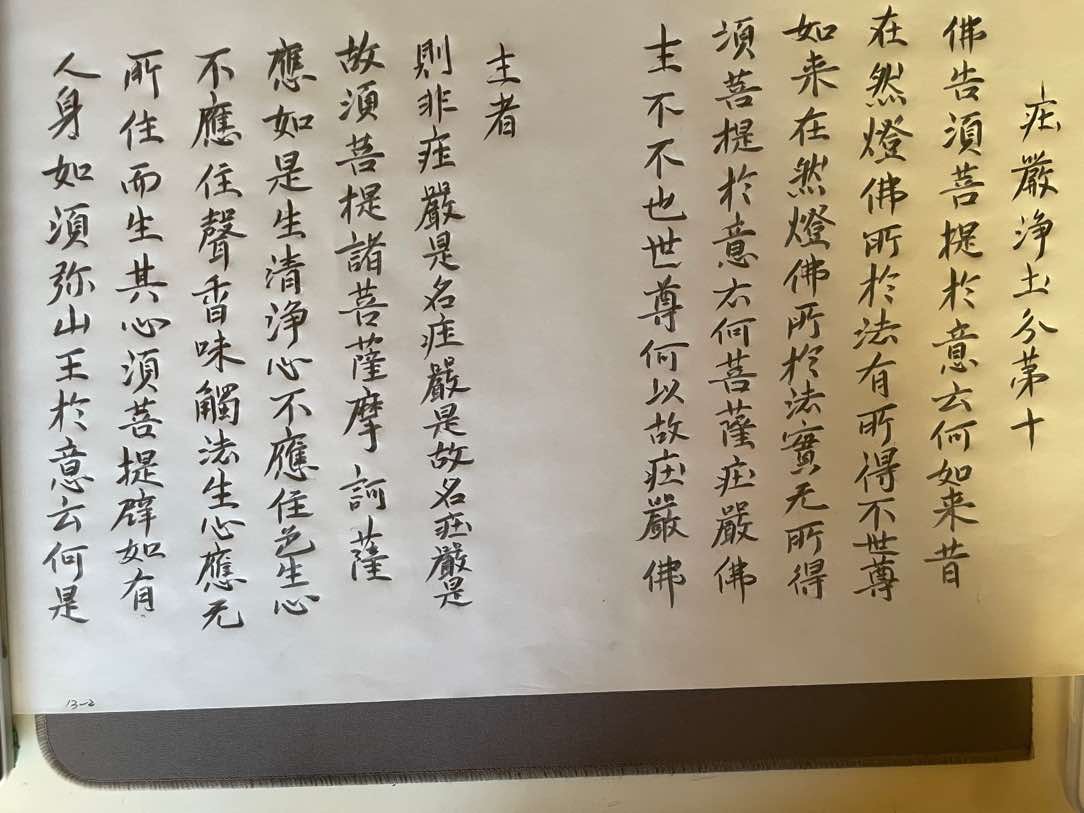 疘嚴淨土分苐十
佛告湏菩提扵意云何如来昔
在然燈佛所扵法有所得不世尊
如来在然燈佛所扵法實无所得
湏菩提扵意云何菩薩疘嚴佛
土不不也世尊何以故疘嚴佛
土者
則非疘嚴是名疘嚴是故名疘嚴是
故湏菩提諸菩薩摩訶薩
應如是生清淨心不應住色生心
不應住聲香味觸法生心應无
所住而生其心湏菩提辟如有
人身如湏弥山王扵意云何是
13-2